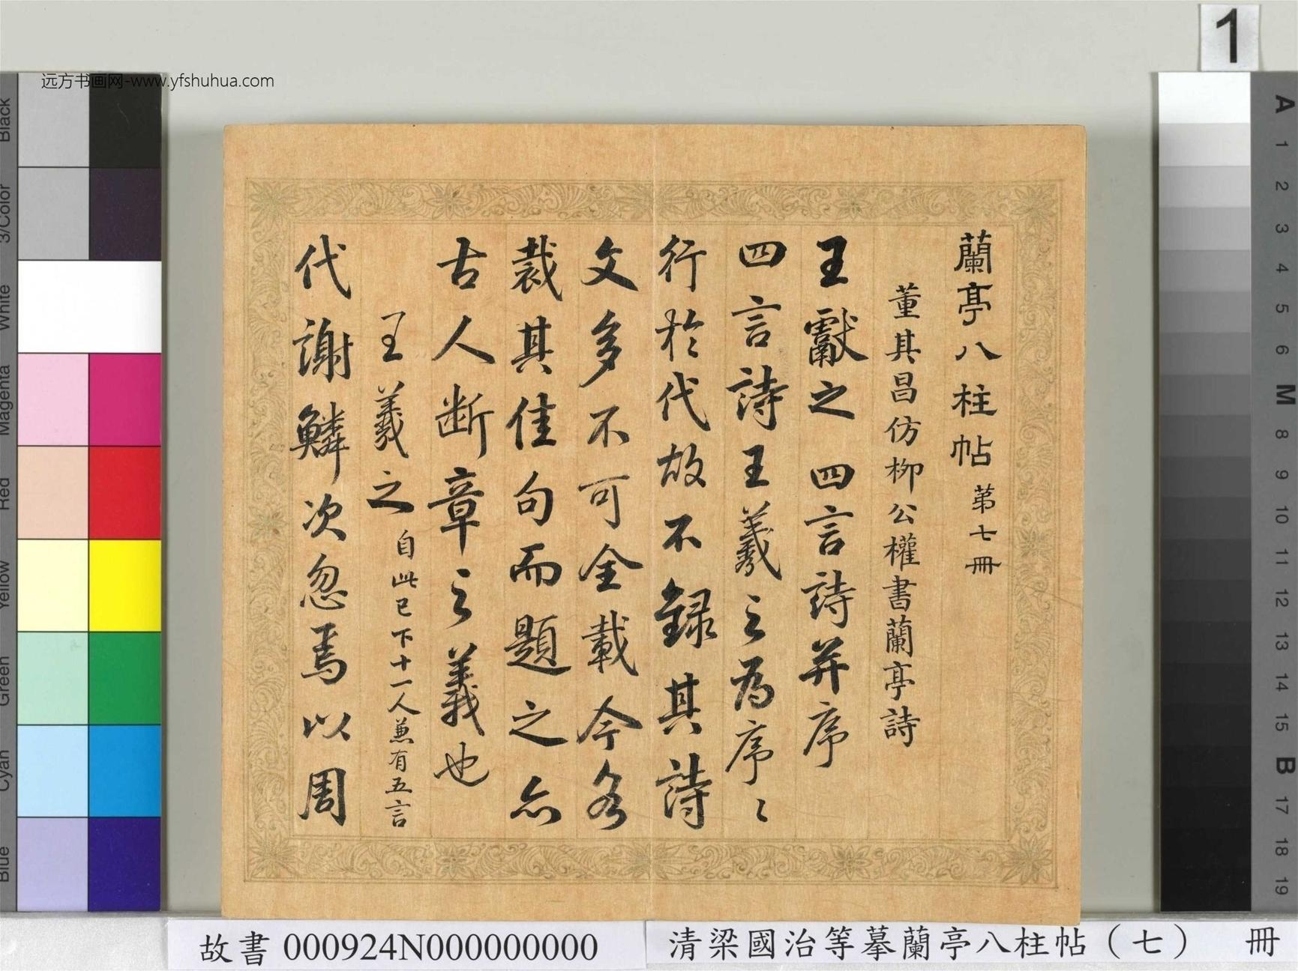 远方书画网-www.yfshuhua.com
1
蘭亭八柱帖第七冊
董其昌仿柳公權書蘭亭詩
王獻之四言詩并序
四言詩王羲之為序序
行於代故不錄其詩
文多不可全載今各
裁其佳句而題之亦
古人斷章之義也
王羲之自此已下十一人兼有五言
代謝鱗次忽焉以周
Black
3/Color
White
Magenta
Red
Yellow
Green
Cyan
Blue
A
1
2
3
4
5
6
M
8
9
10
11
12
13
14
15
B
17
18
19
故書 000924N000000000
清梁國治等摹蘭亭八柱帖（七） 冊